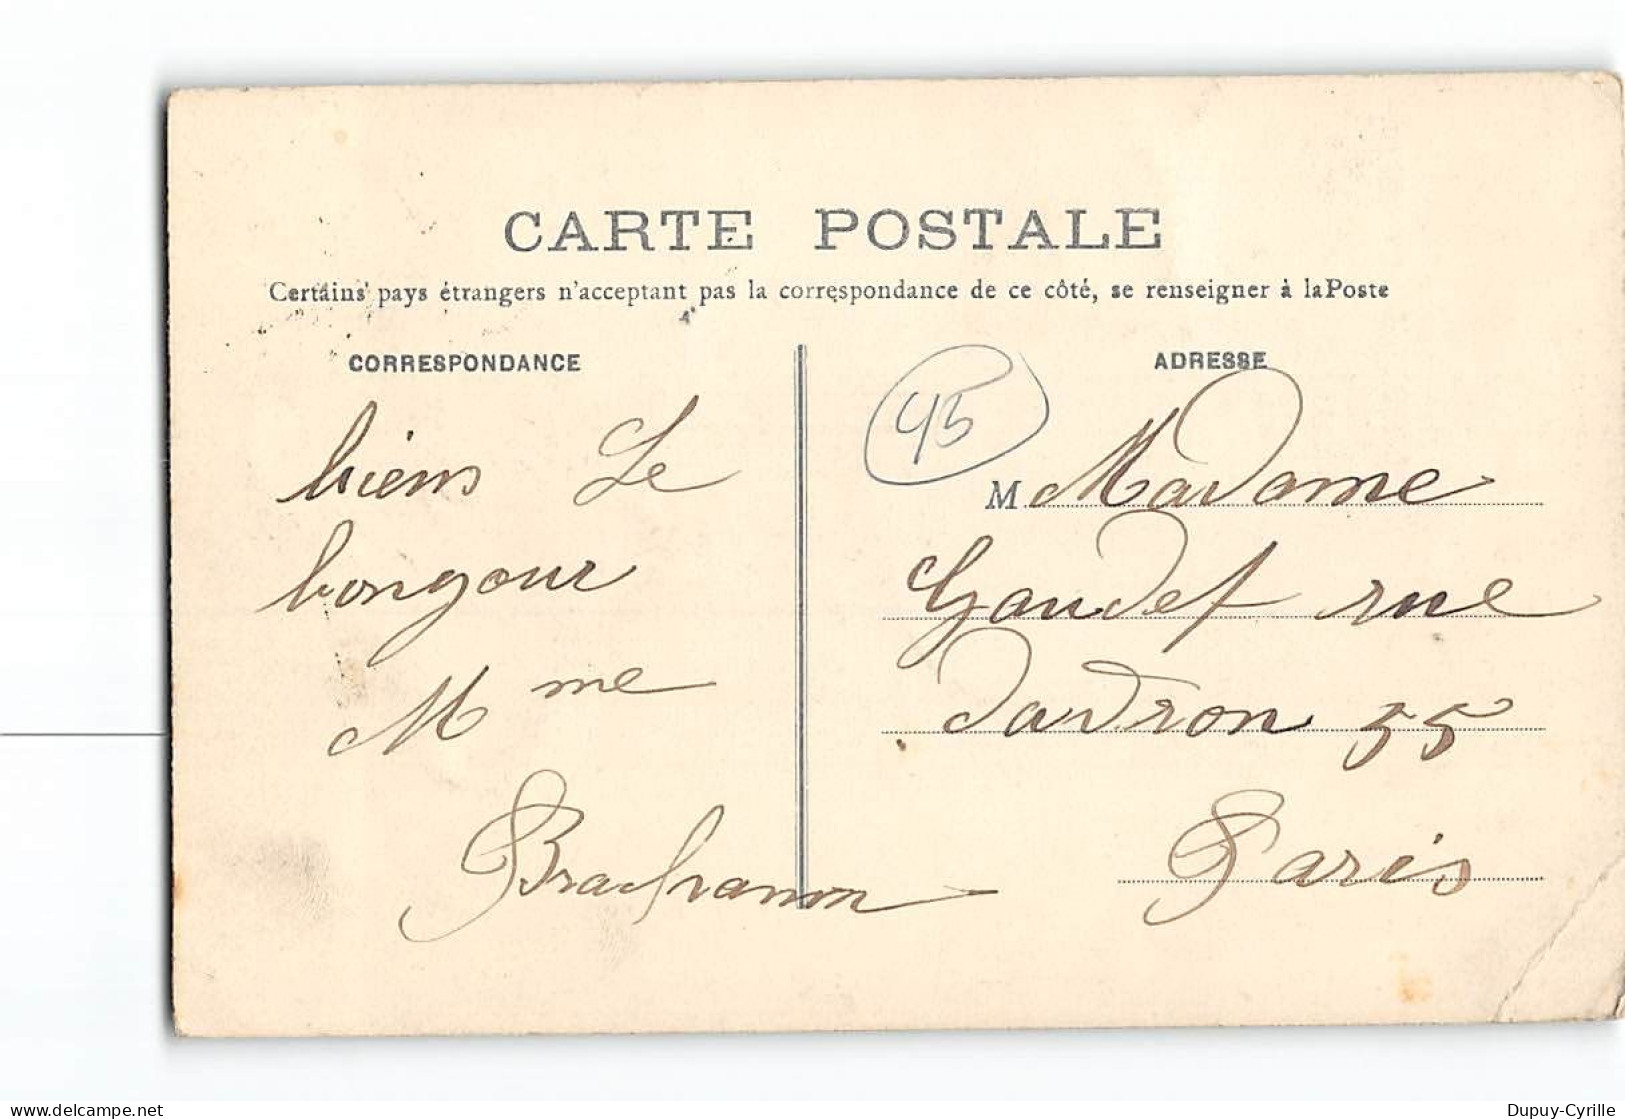 CARTE POSTALE
Certains pays étrangers n'acceptant pas la correspondance de ce côté, se renseigner à la Poste
CORRESPONDANCE
biens Le
bongour
Mme
ADRESSE
45
M Madame
Gaudet rue
davron 55
Paris
Dupuy-Cyrille